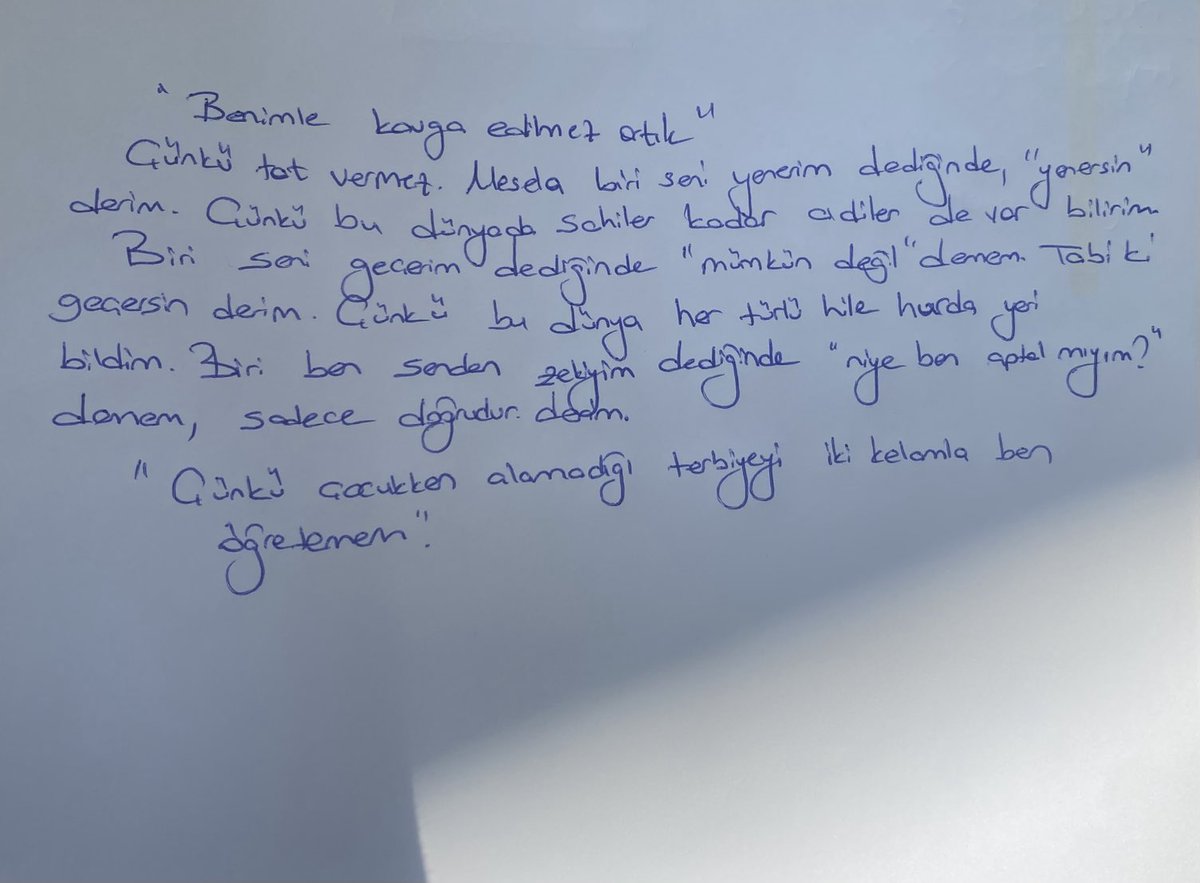 "Benimle kavga edilmez artık"
Çünkü tat vermez. Mesela biri seni yenerim dediğinde, "yenersin"
derim. Çünkü bu dünyada sahiler kadar adiler de var bilirim.
Biri seni geçerim dediğinde "mümkün değil" demem. Tabi ki
geçersin derim. Çünkü bu dünya her türlü hile hurda yeri
bildim. Biri ben senden zekiyim dediğinde "niye ben aptal mıyım?"
demem, sadece doğrudur derim.
"Çünkü çocukken alamadığı terbiyeyi iki kelamla ben
öğretemem".